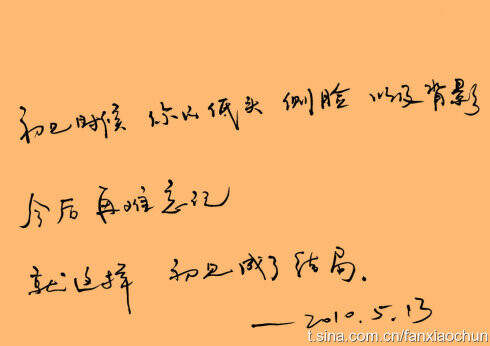 初见时候 你的低头 侧脸 以及背影
今后再难忘记
就这样 初见成了结局.
—2010.5.13
t.sina.com.cn/fanxiaochun